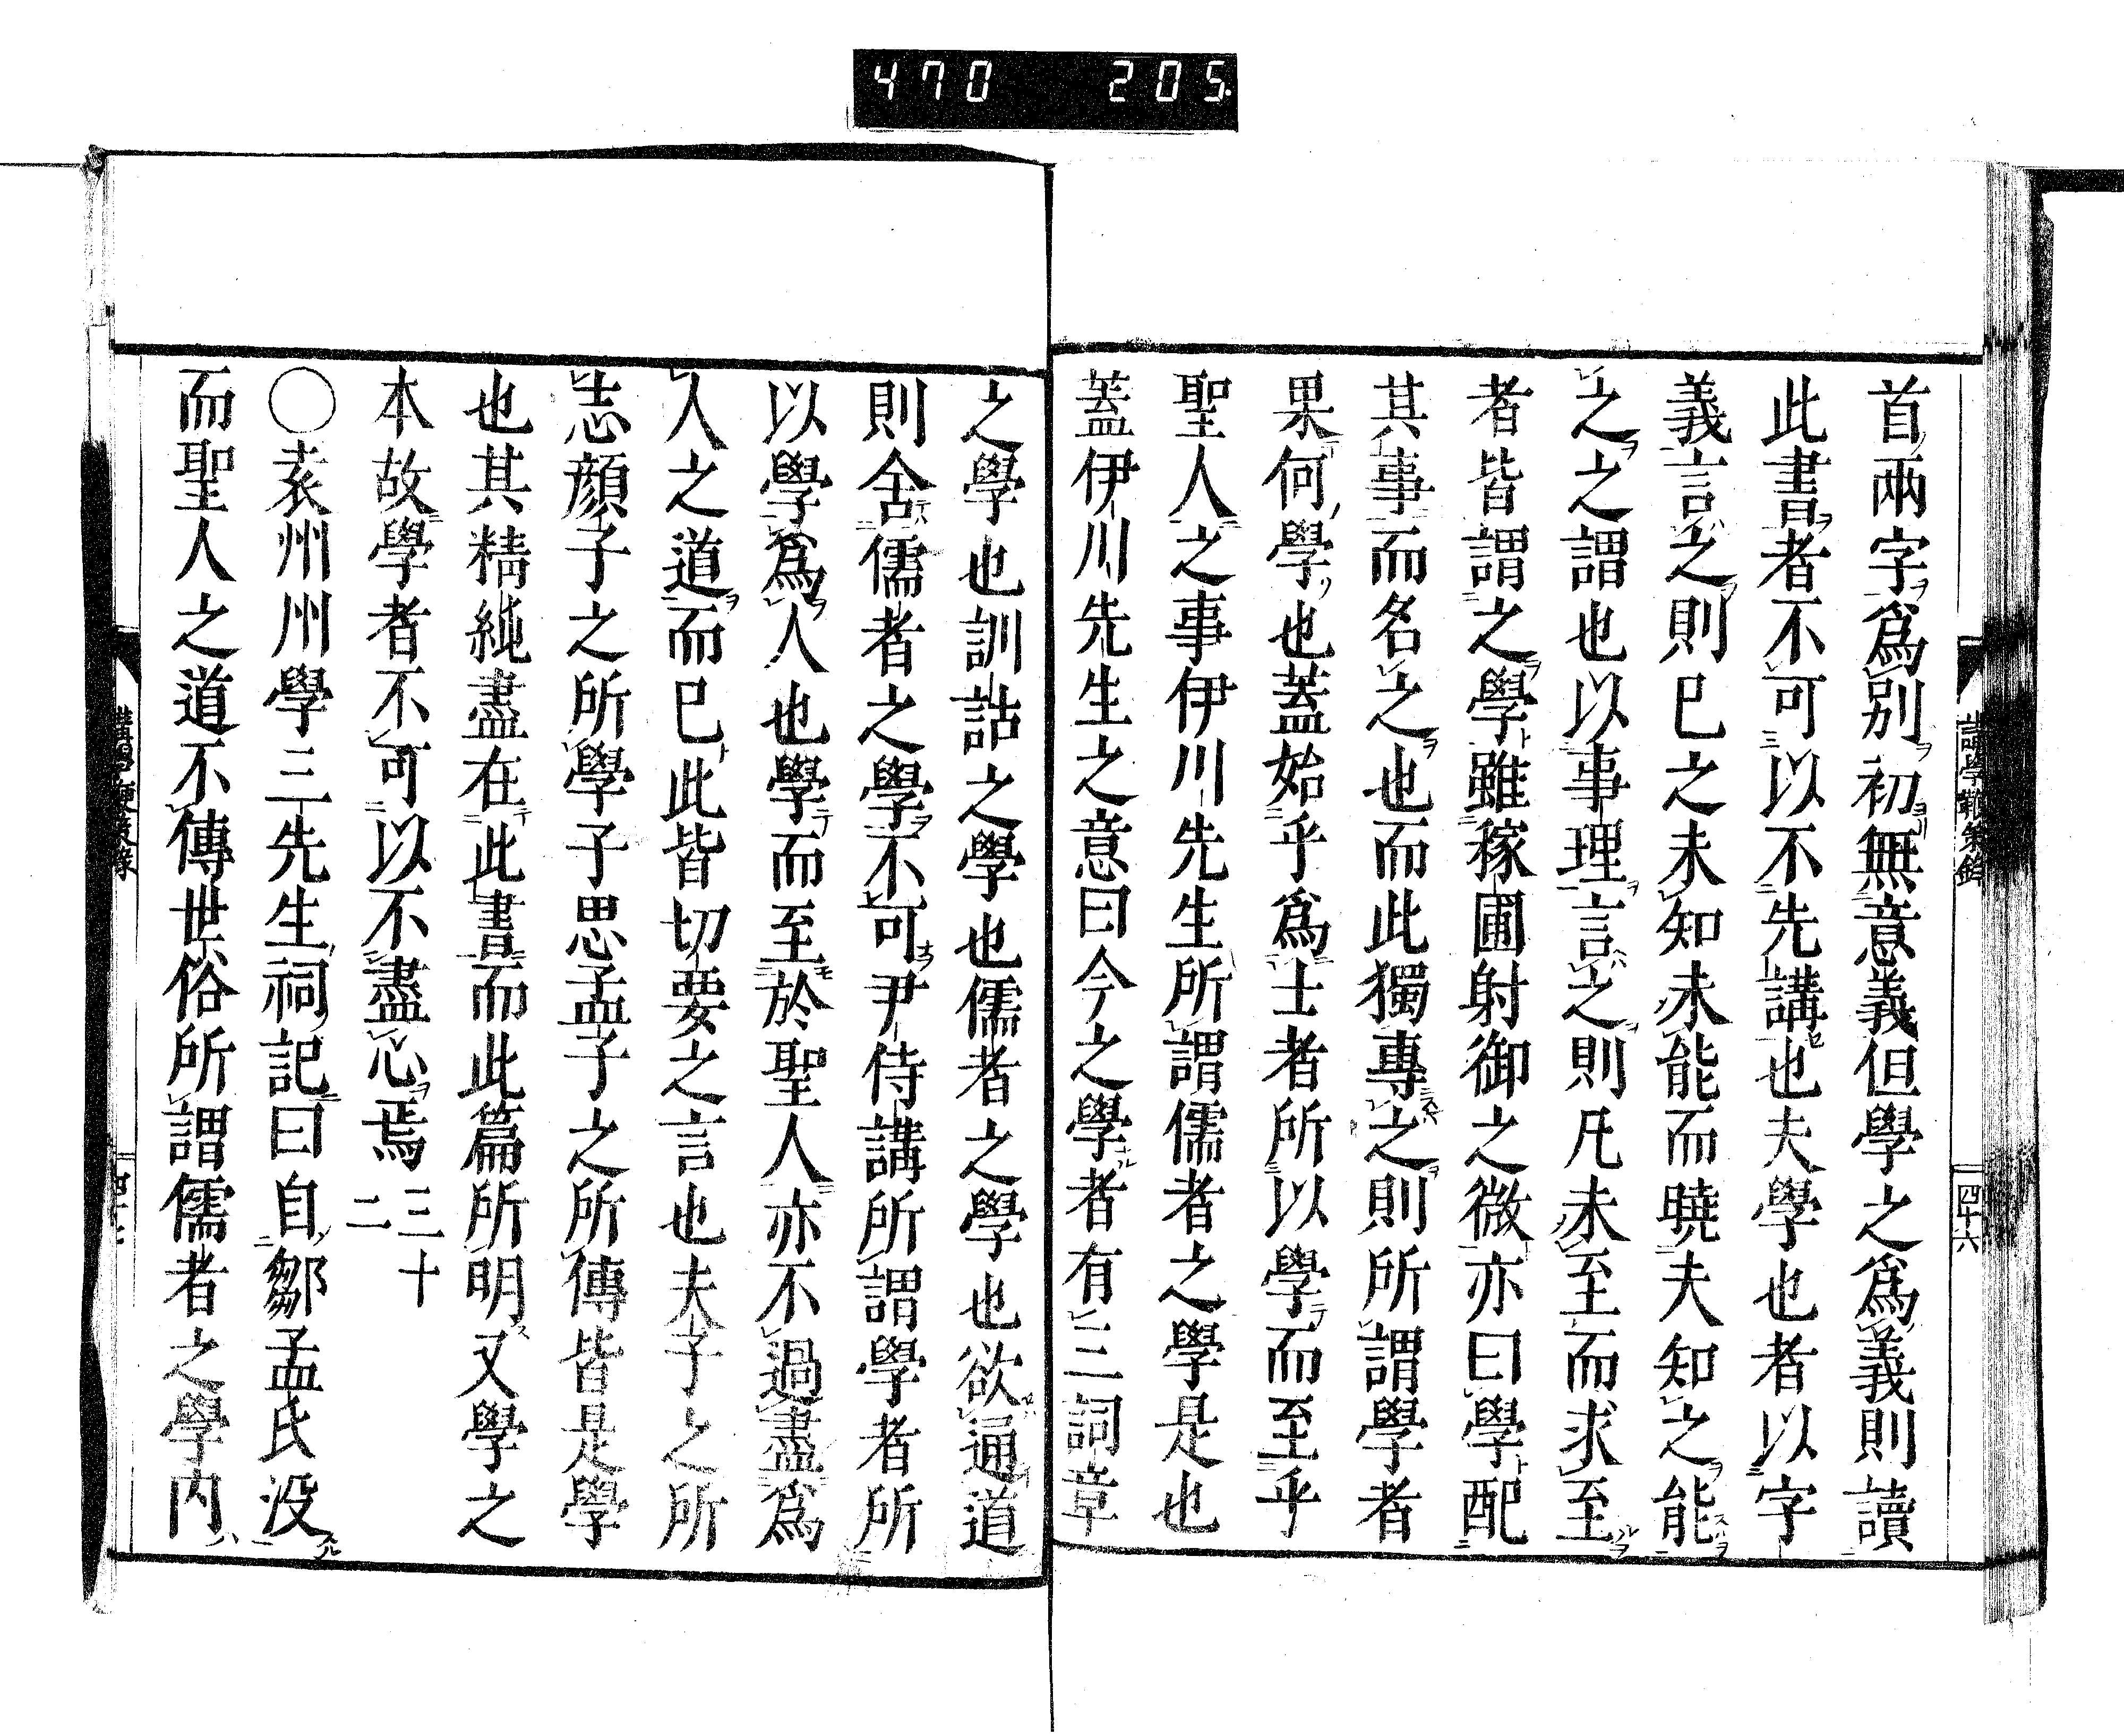 470 205
首兩字爲別初無意義但學之爲義則讀
此書者不可以不先講也夫學也者以字
義言之則已之未知未能而曉夫知之能
之之謂也以事理言之則凡未至而求至
者皆謂之學雖稼圃射御之微亦曰學配
其事而名之也而此獨專之則所謂學者
果何學也蓋始乎爲士者所以學而至乎
聖人之事伊川先生所謂儒者之學是也
蓋伊川先生之意曰今之學者有三詞章
四十六
之學也訓詁之學也儒者之學也欲通道
則舍儒者之學不可尹侍講所謂學者所
以學爲人也學而至於聖人亦不過盡爲
人之道而已此皆切要之言也夫子之所
志顔子之所學子思孟子之所傳皆是學
也其精純盡在此書而此篇所明又學之
本故學者不可以不盡心焉 三十二
○袁州州學三先生祠記曰自鄒孟氏没
而聖人之道不傳世俗所謂儒者之學内